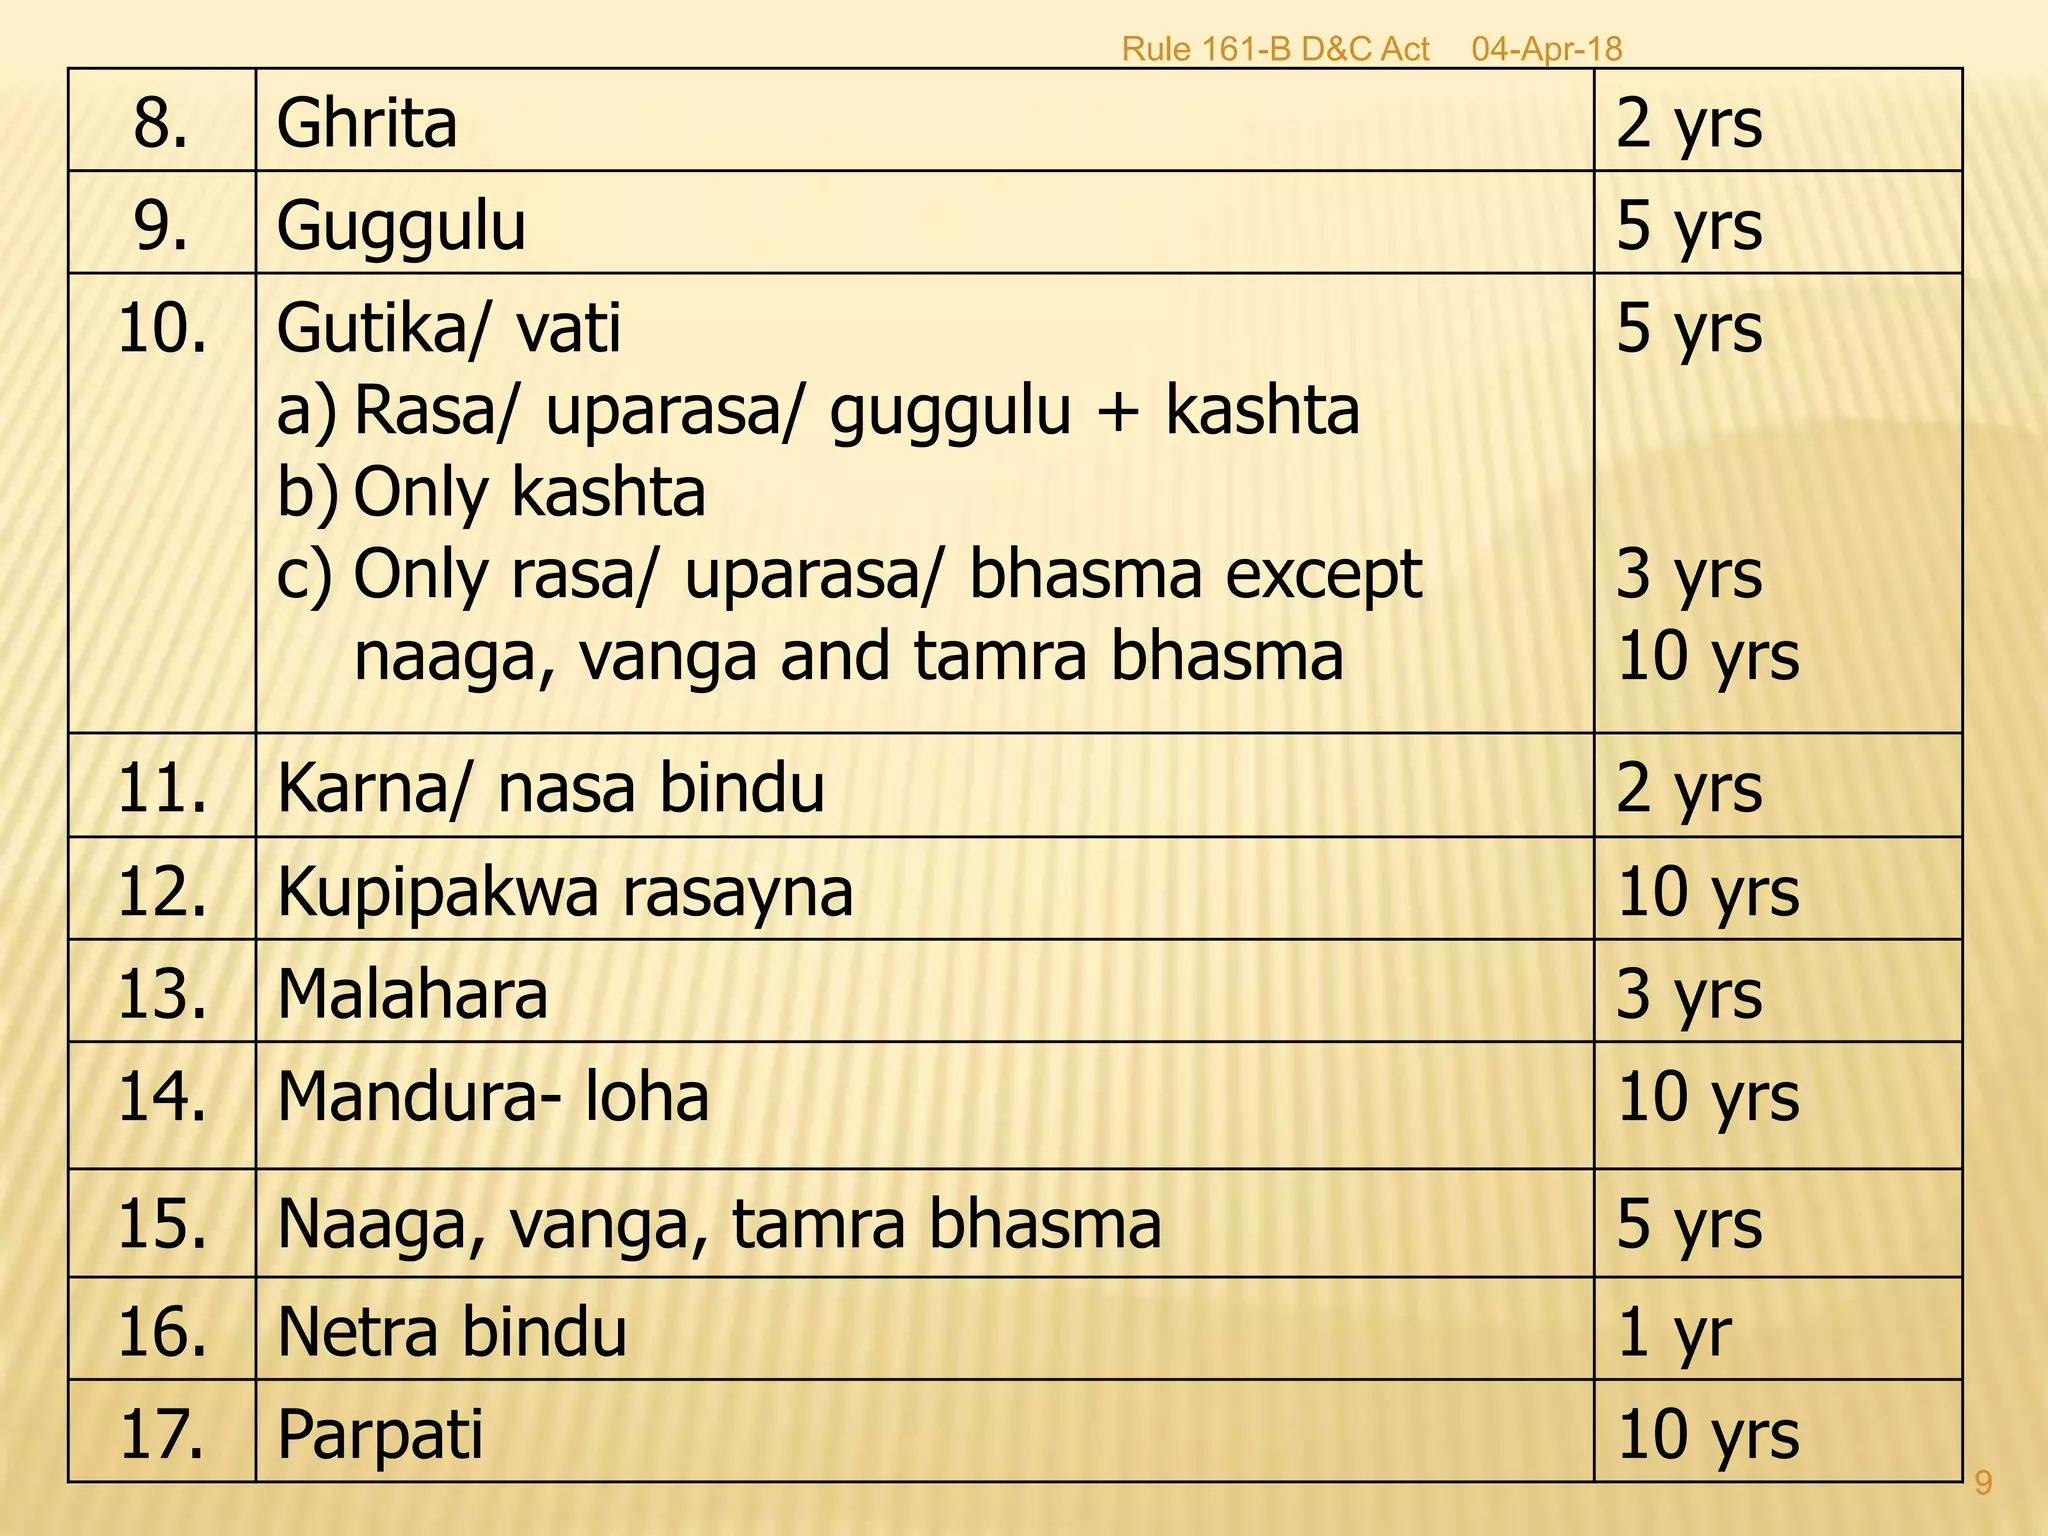 Rule 161-B D&C Act 04-Apr-18
8. Ghrita 2 yrs
9. Guggulu 5 yrs
10. Gutika/ vati 5 yrs
a) Rasa/ uparasa/ guggulu + kashta
b) Only kashta
c) Only rasa/ uparasa/ bhasma except 3 yrs
naaga, vanga and tamra bhasma 10 yrs
11. Karna/ nasa bindu 2 yrs
12. Kupipakwa rasayna 10 yrs
13. Malahara 3 yrs
14. Mandura- loha 10 yrs
15. Naaga, vanga, tamra bhasma 5 yrs
16. Netra bindu 1 yr
17. Parpati 10 yrs
9